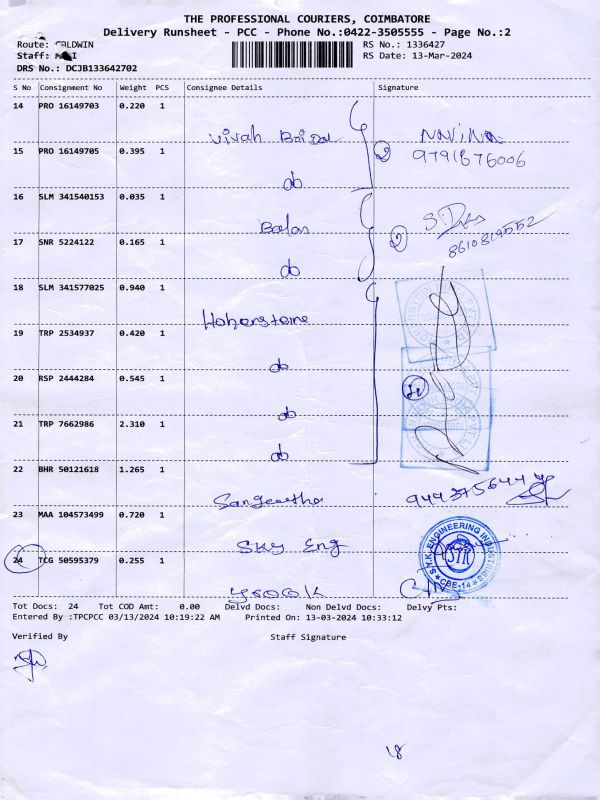 THE PROFESSIONAL COURIERS, COIMBATORE
Delivery Runsheet - PCC - Phone No.:0422-3505555 - Page No.:2
Route: CALDWIN RS No.: 1336427
Staff: RS Date: 13-Mar-2024
DRS No.: DCJB133642702
S No Consignment No Weight PCS Consignee Details Signature
14 PRO 16149703 0.220 1
15 PRO 16149705 0.395 1 do 2 9791676006
16 SLM 341540153 0.035 1
17 SNR 5224122 0.165 1 do 2 8610819552
18 SLM 341577025 0.940 1 Hohenstein
19 TRP 2534937 0.420 1 do
20 RSP 2444284 0.545 1 do
21 TRP 7662986 2.310 1 do
22 BHR 50121618 1.265 1 Sangeetha 9443756444
23 MAA 104573499 0.720 1 Sky Eng
S.Y.K. ENGINEERING INDUSTRIES
CBE-14
24 TCG 50595379 0.255 1
Tot Docs: 24 Tot COD Amt: 0.00 Delvd Docs: Non Delvd Docs: Delvy Pts:
Entered By :TPCPCC 03/13/2024 10:19:22 AM Printed On: 13-03-2024 10:33:12
Verified By Staff Signature
18